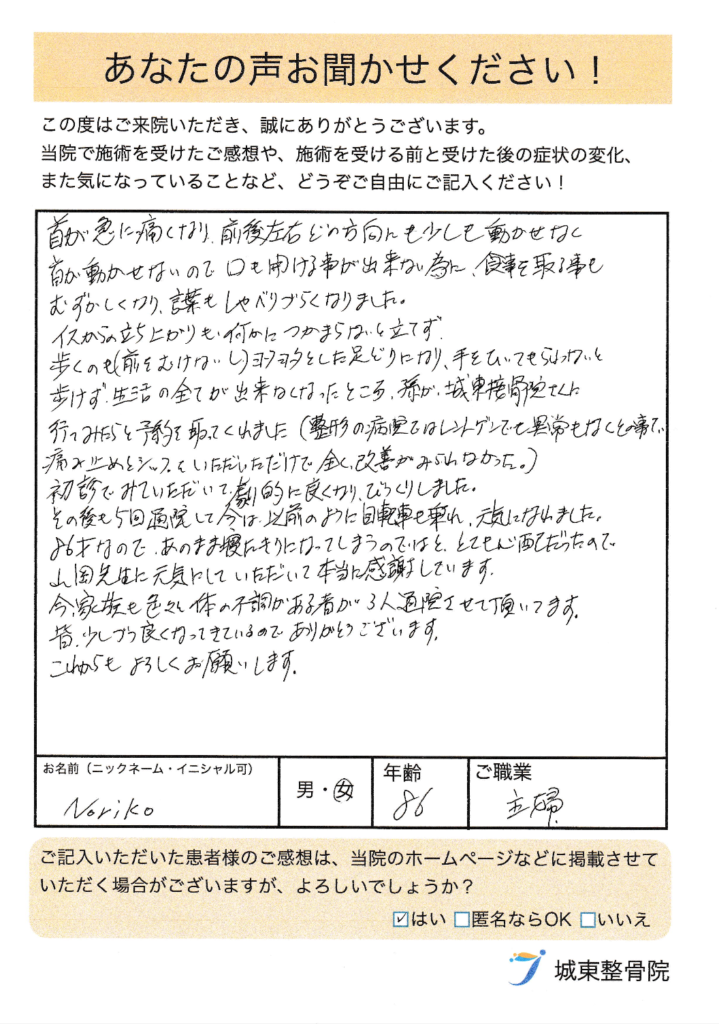 あなたの声お聞かせください！
この度はご来院いただき、誠にありがとうございます。
当院で施術を受けたご感想や、施術を受ける前と受けた後の症状の変化、
また気になっていることなど、どうぞご自由にご記入ください！
首が急に痛くなり、前後左右どの方向にも少しも動かせなく
首が動かせないので口も開ける事が出来ない為に、食事を取る事も
むずかしくなり、言葉もしゃべりづらくなりました。
イスからの立ち上がりも何かにつかまらないと立てず、
歩くのも(前をむけないし)ヨタヨタとした足どりになり、手をひいてもらわないと
歩けず、生活の全てが出来なくなったところ、孫が、城東接骨院さんに
行ってみたらと予約を取ってくれました(整形の病院ではレントゲンでも異常もなくその事で、
痛み止めとシップをいただいただけで全く改善がみられなかった。)
初診でみていただいて劇的に良くなり、びっくりしました。
その後も5回通院して今は、以前のように自転車も乗れ、元気になれました。
86才なので、あのまま寝たきりになってしまうのではと、とても心配だったので
山岡先生に元気にしていただいて本当に感謝しています。
今、家族も色々体の不調がある者が3人通院させて頂いてます。
皆、少しづつ良くなってきているのでありがとうございます。
これからもよろしくお願いします。
お名前（ニックネーム・イニシャル可）
Noriko
男・女
年齢
86
ご職業
主婦
ご記入いただいた患者様のご感想は、当院のホームページなどに掲載させて
いただく場合がございますが、よろしいでしょうか？
はい 匿名ならOK いいえ
城東整骨院